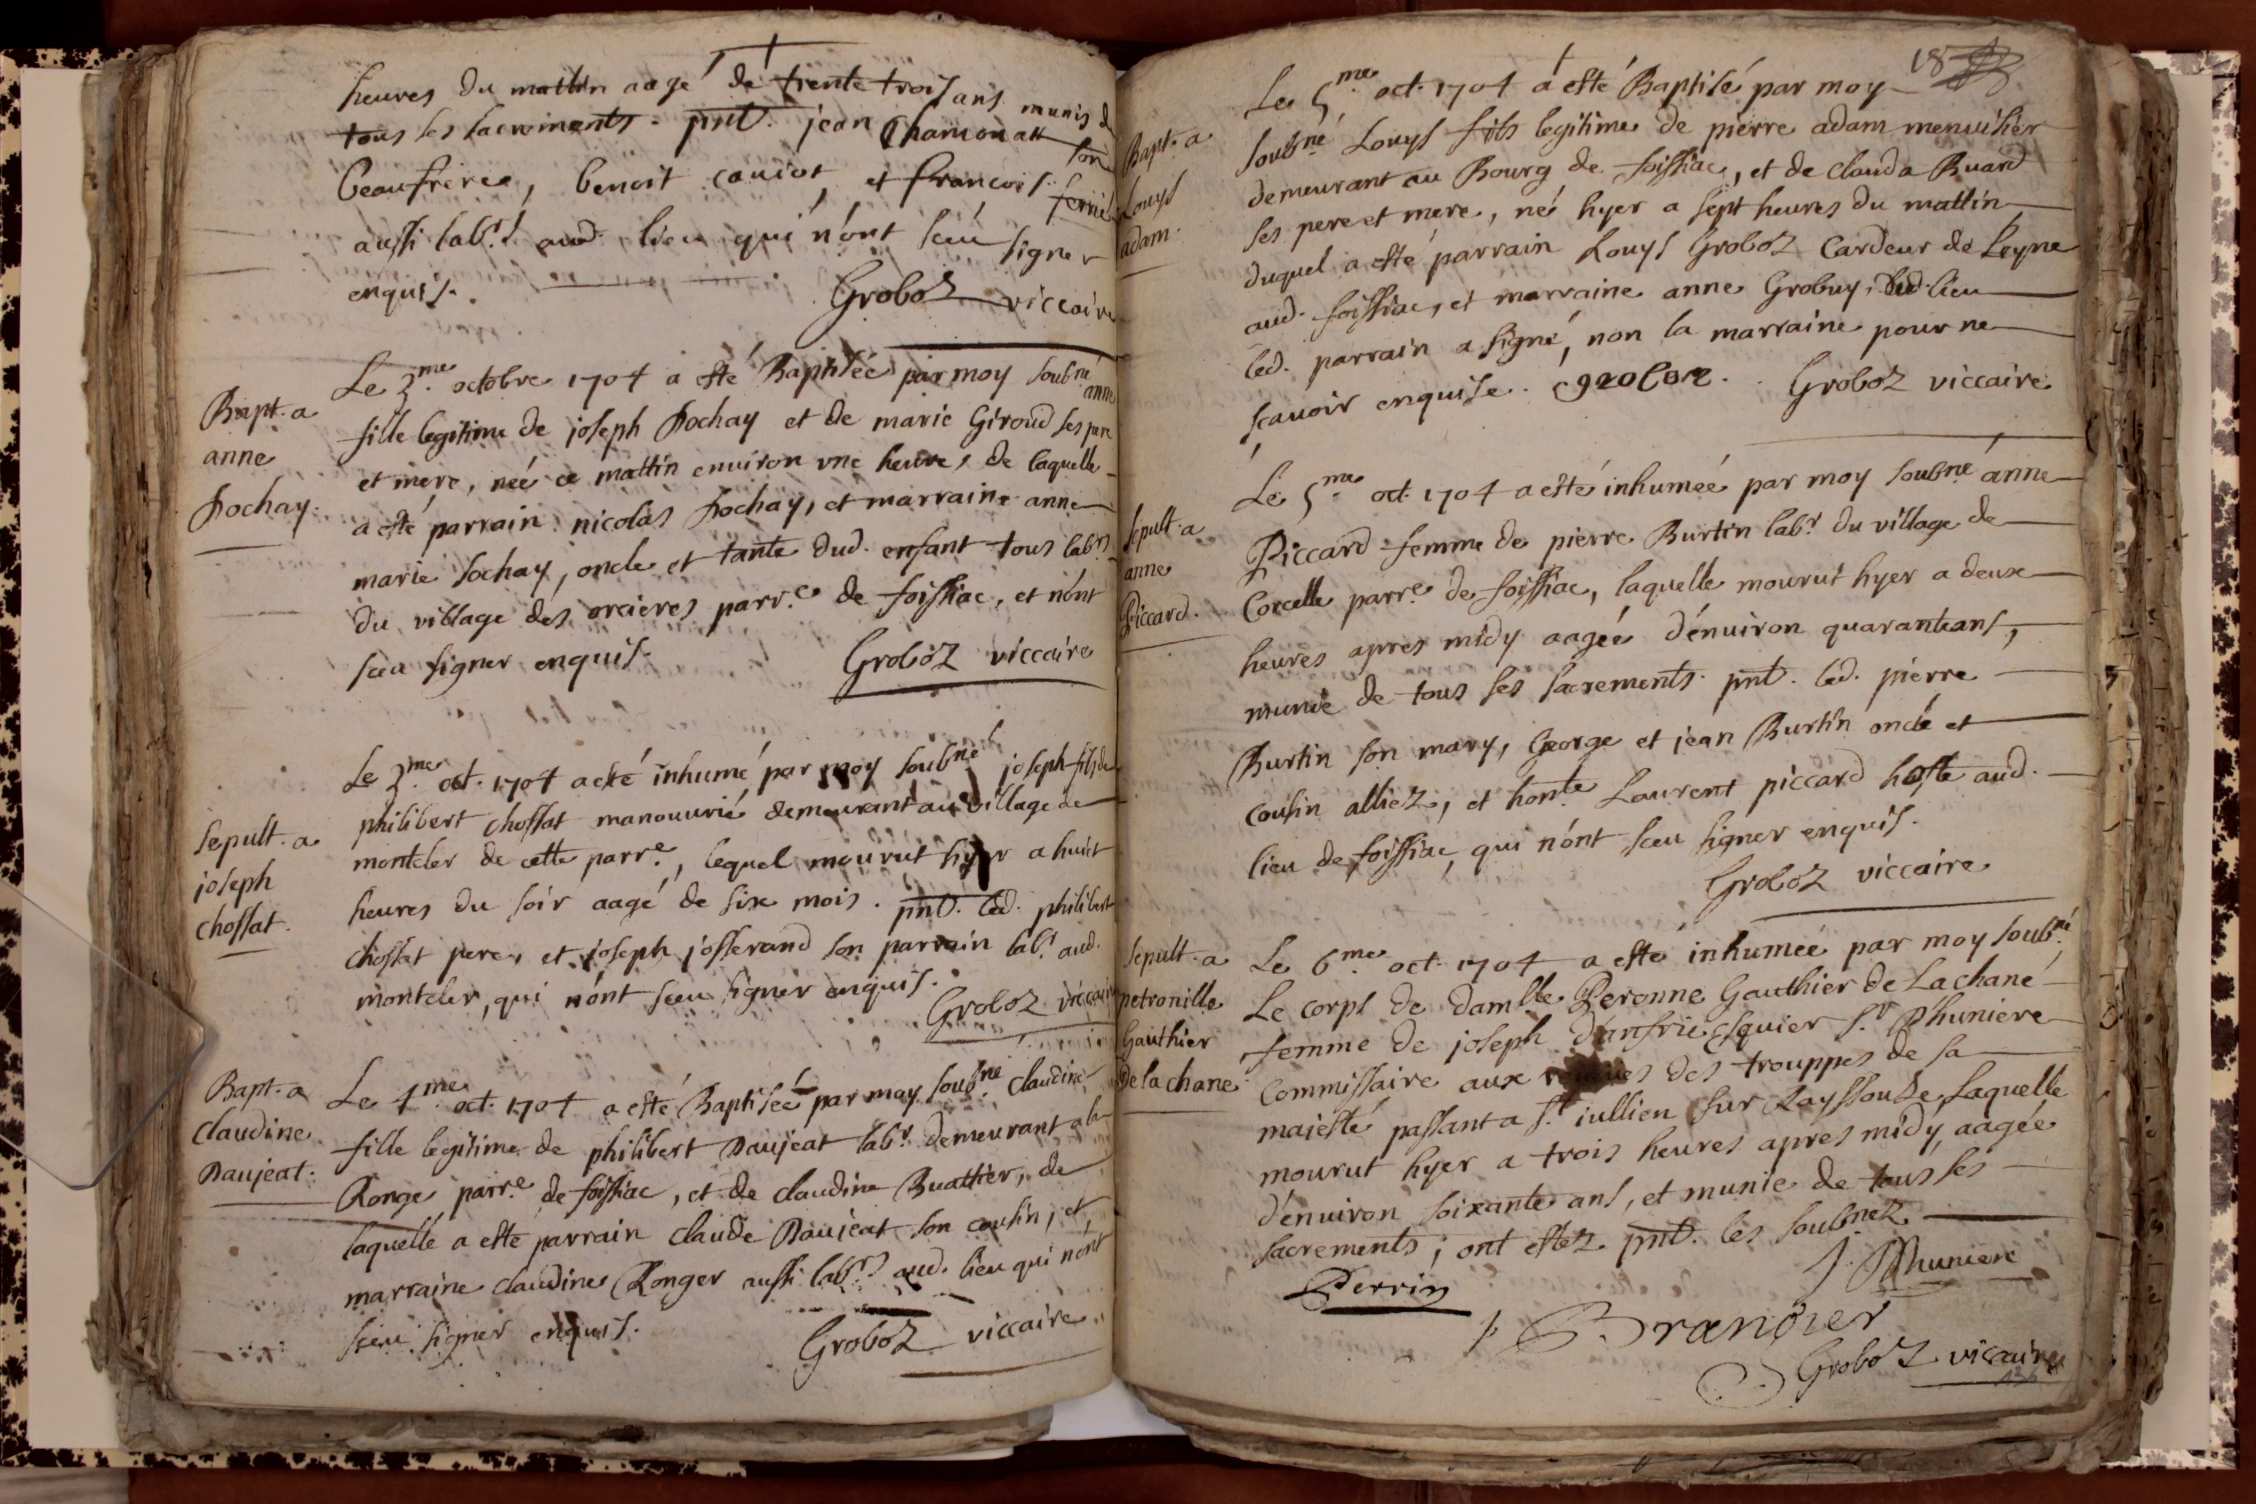 heures du mattin aagé de trente trois ans munis de
tous ses sacrements. pnt. jean Chamonatt son
beaufrere, benoit caviot, et francois ferrié
aussi labrs. aud. lieu qui n'ont sceu signer
enquis. Groboz viccaire
Bapt. a
anne
Sochay.
Le 3.me octobre 1704 a esté Baptisée par moy soubné anne
fille legitime de joseph Sochay et de marie Giroud ses pere
et mere, née ce mattin environ une heure, de laquelle
a esté parrain nicolas Sochay, et marraine anne
marie Sochay, oncle et tante dud. enfant tous labrs
du village des orcieres parr.e de foissiac, et n'ont
sceu signer enquis. Groboz viccaire
Sepult. a
joseph
chossat.
Le 3.me oct. 1704 a esté inhumé par moy soubné joseph fils de
philibert chossat manouvrié demeurant au village de
montcler de cette parr.e, lequel mourut hyer a huict
heures du soir aagé de six mois. pnt. led. philibert
chossat pere, et joseph josserand son parrain lab.r aud.
montcler, qui n'ont sceu signer enquis.
Groboz viccaire
Bapt. a
Claudine
Daujeat.
Le 4.me oct. 1704 a esté Baptisée par moy soubné claudine
fille legitime de philibert Daujeat lab.r demeurant a la
Ronge parr.e de foissiac, et de claudine Buattier, de
laquelle a esté parrain claude Daujeat son cousin, et
marraine claudine Ronger aussi lab.rs aud. lieu qui n'ont
sceu signer enquis. Groboz viccaire
18
Bapt. a
Louys
adam.
Le 5.me oct. 1704 a esté Baptisé par moy
soubné Louys fils legitime de pierre adam menuisier
demeurant au Bourg de foissiac, et de clauda Buard
ses pere et mere, né hyer a sept heures du mattin
duquel a esté parrain Louys Groboz Cardeur de Leyne
aud. foissiac, et marraine anne Grobuy, dud. lieu
led. parrain a signé, non la marraine pour ne
scavoir enquise. groboz. Groboz viccaire
Sepult. a
anne
Piccard.
Le 5.me oct. 1704 a esté inhumée par moy soubné anne
Piccard femme de pierre Burtin lab.r du village de
Corcelle parr.e de foissiac, laquelle mourut hyer a deux
heures apres midy aagée d'environ quarante ans,
munie de tous ses sacrements. pnt. led. pierre
Burtin son mary, George et jean Burtin oncle et
cousin alliez, et hon.te Laurent piccard hoste aud.
lieu de foissiac, qui n'ont sceu signer enquis.
Groboz viccaire
Sepult. a
petronille
Gauthier
de la chané
Le 6.me oct. 1704 a esté inhumée par moy soubné
Le corps de damlle Peronne Gauthier de Lachané
femme de joseph Danfrie esquier S.r D'huniere
Commissaire aux des trouppes de sa
maiesté passant a S.t jullien sur Rayssouze, Laquelle
mourut hyer a trois heures apres midy aagée
d'environ soixante ans, et munie de tous ses
sacrements, ont estez pnt. les soubnez
J. Dhuniere
Perrin
Brangier
Groboz vicaire